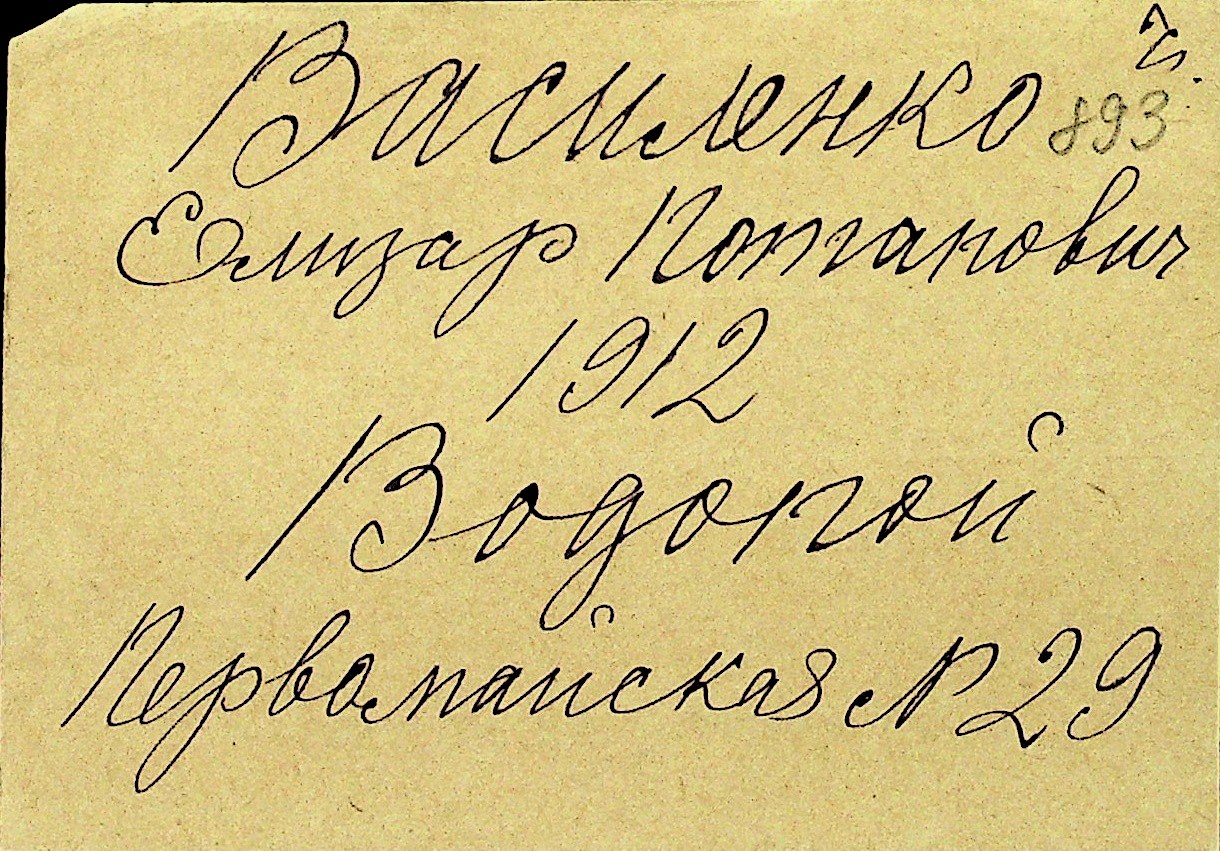 Василенко
893
Елизар Потапович
1912
Водопой
Первомайская № 29